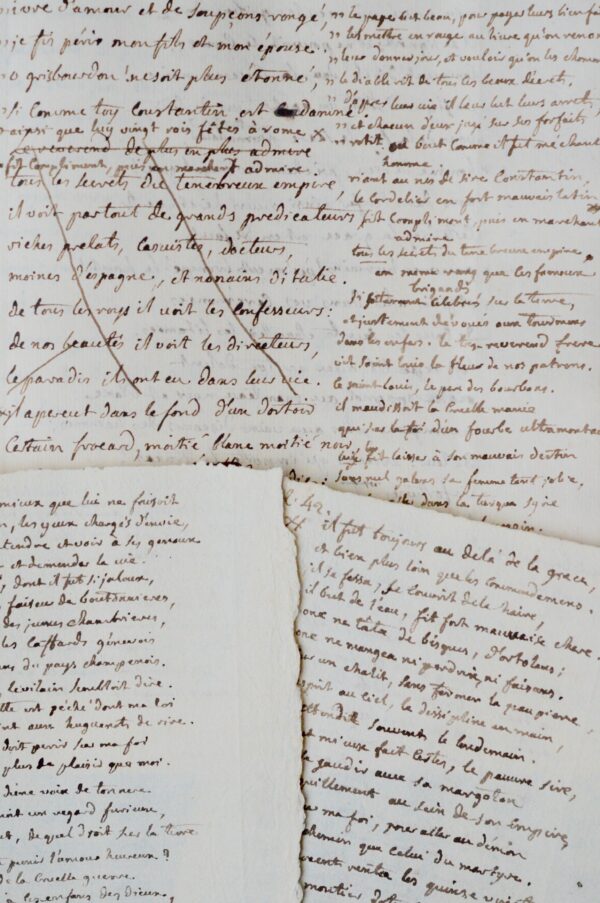 vivre d'amour et de soupçons rongé,
je fis périr mon fils et mon épouse
o grisbourdon ne soit plus étonné,
si comme toy Constantin est damné
ainsi que luy vingt rois fêtés à rome x
Le reverend de plus en plus admire
fit compliment, puis en marchant admire
tous les secrets du tenebreux empire,
il voit partout de grands predicateurs
riches prelats, casuistes, docteurs,
moines d'espagne, et nonains d'italie.
de tous les roys il voit les confesseurs:
de nos beautés il voit les directeurs,
le paradis ils ont eu dans leur vie.
il aperçut dans le fond d'un dortoir
Certain frocard, moitié blanc moitié noir,
le pape bat beau, pour payer leurs bienfaits
les mettre en rouge au livre qu'on renom
leur donner jour, et vouloir qu'on les chomme
le diable rit de tous les beaux decrets,
d'apres leur vie il leur lut leurs arrets,
et chacun d'eux jugé sur ses forfaits
rotit
riant au nés de sire Constantin,
le Cordelier en fort mauvais latin
fit Compliment, puis en marchant
admire
tous les secrets du tenebreux empire
en meme rang que les fameux
brigands
si celebres sur la terre,
et justement dévoués aux tourmens
dans les enfers. le tres reverend frere
vit saint louis la fleur de nos patrons.
le saint louis, le pere des bourbons.
il maudissoit la cruelle manie
qui sur la foi d'un fourbe ultramontain
lui fit laisser à son mauvais destin
sa femme tant jolie.
dans la turque syrie
mieux que lui ne faisoit
les yeux chargés d'envie,
tendre et voir à ses genoux
et demander la vie.
dont il fut si jaloux,
faiseur de boutonnieres,
des jeunes chambrieres,
les caffards génevois
du pays champenois.
le vilain sembloit dire.
est péché dont ma loi
aux huguenots de rire.
doit perir sur ma foi
plus de plaisir que moi.
dième voix de tonnere
un regard furieux,
de quel droit sur la terre
punir l'amour heureux?
de la cruelle guerre
les enfans des Dieux,
42.
il fut toujours au delà de la grace,
et bien plus loin que les commendemens.
il se fessa, se couvrit de la haire,
il but de l'eau, fit fort mauvaise chere.
onc ne tâta de bisques, d'ortolans;
onc ne mangea ni perdrix, ni faisans.
sur un chalit, sans fermer la paupiere,
esprit au ciel, la dissipline en main,
attendit souvent le lendemain.
mieux fait Certes, le pauvre sire,
gaudir avec sa margoton
tranquillement au sein de son empire,
ma foi, pour aller au démon
chemin que celui du martyre.
les quinze vingt